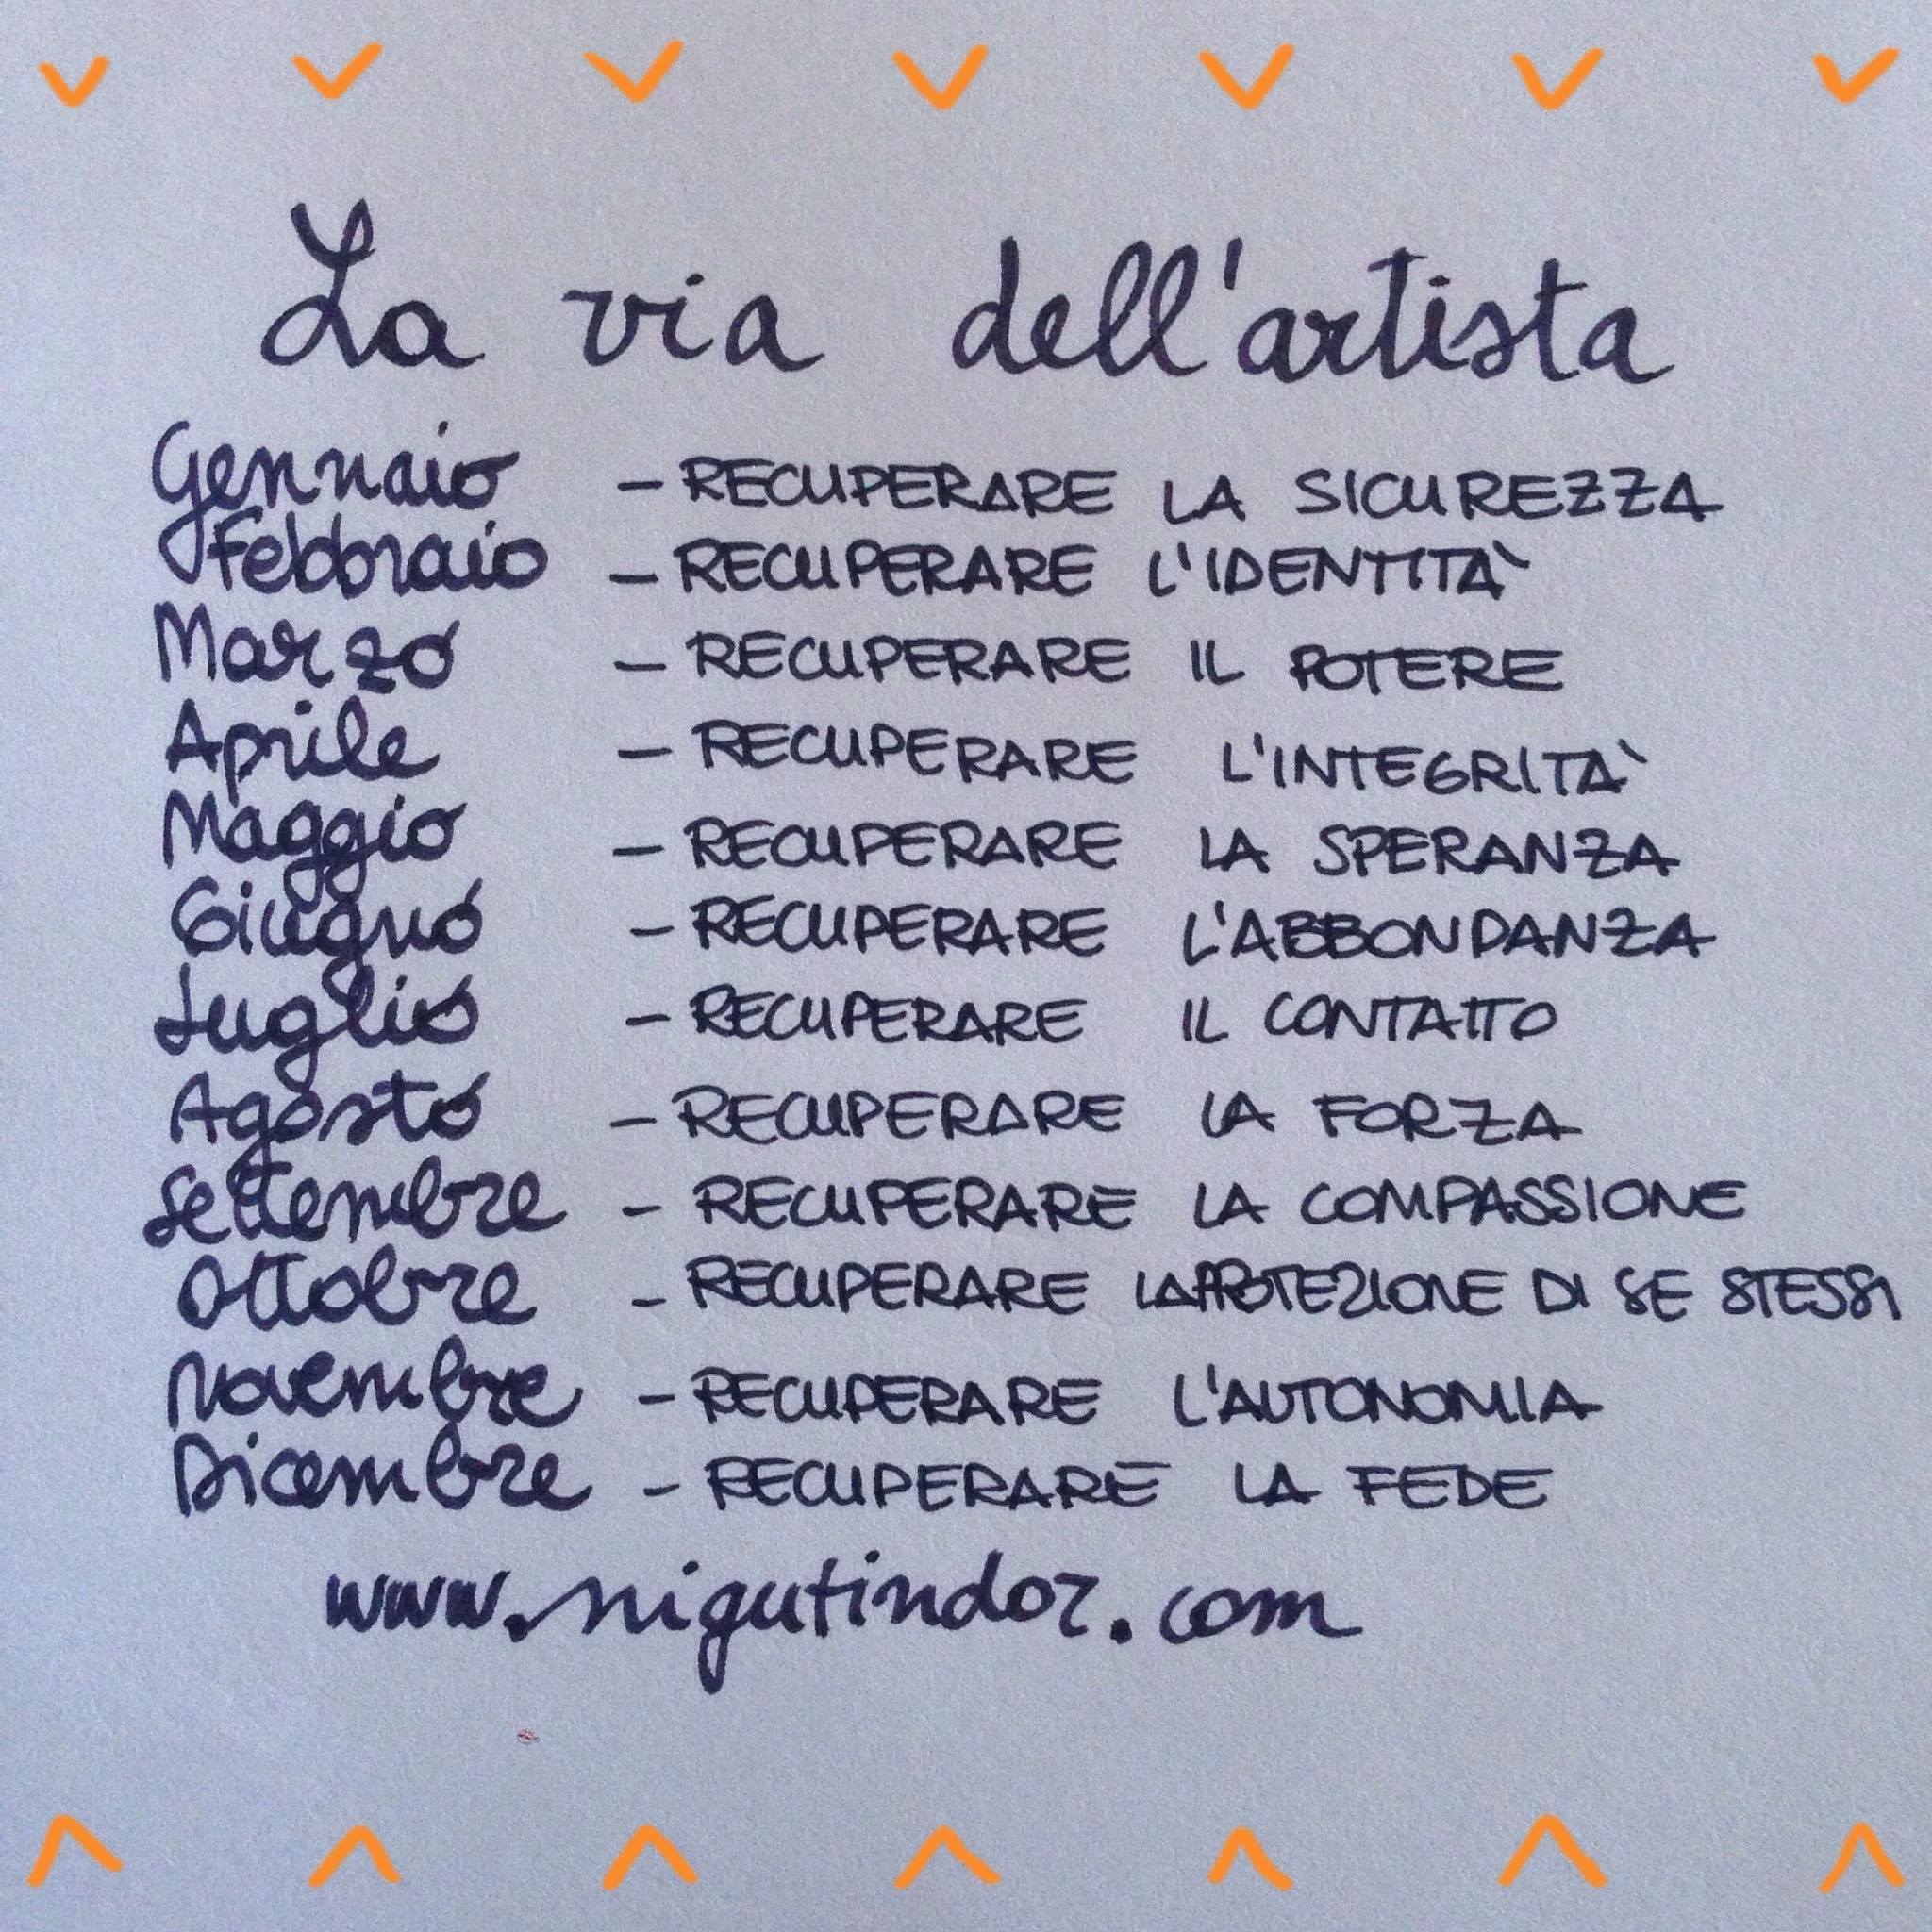 La via dell'artista
Gennaio - RECUPERARE LA SICUREZZA
Febbraio - RECUPERARE L'IDENTITÀ
Marzo - RECUPERARE IL POTERE
Aprile - RECUPERARE L'INTEGRITÀ
Maggio - RECUPERARE LA SPERANZA
Giugno - RECUPERARE L'ABBONDANZA
Luglio - RECUPERARE IL CONTATTO
Agosto - RECUPERARE LA FORZA
Settembre - RECUPERARE LA COMPASSIONE
Ottobre - RECUPERARE LA PROTEZIONE DI SE STESSI
Novembre - RECUPERARE L'AUTONOMIA
Dicembre - RECUPERARE LA FEDE
www.nigutindor.com